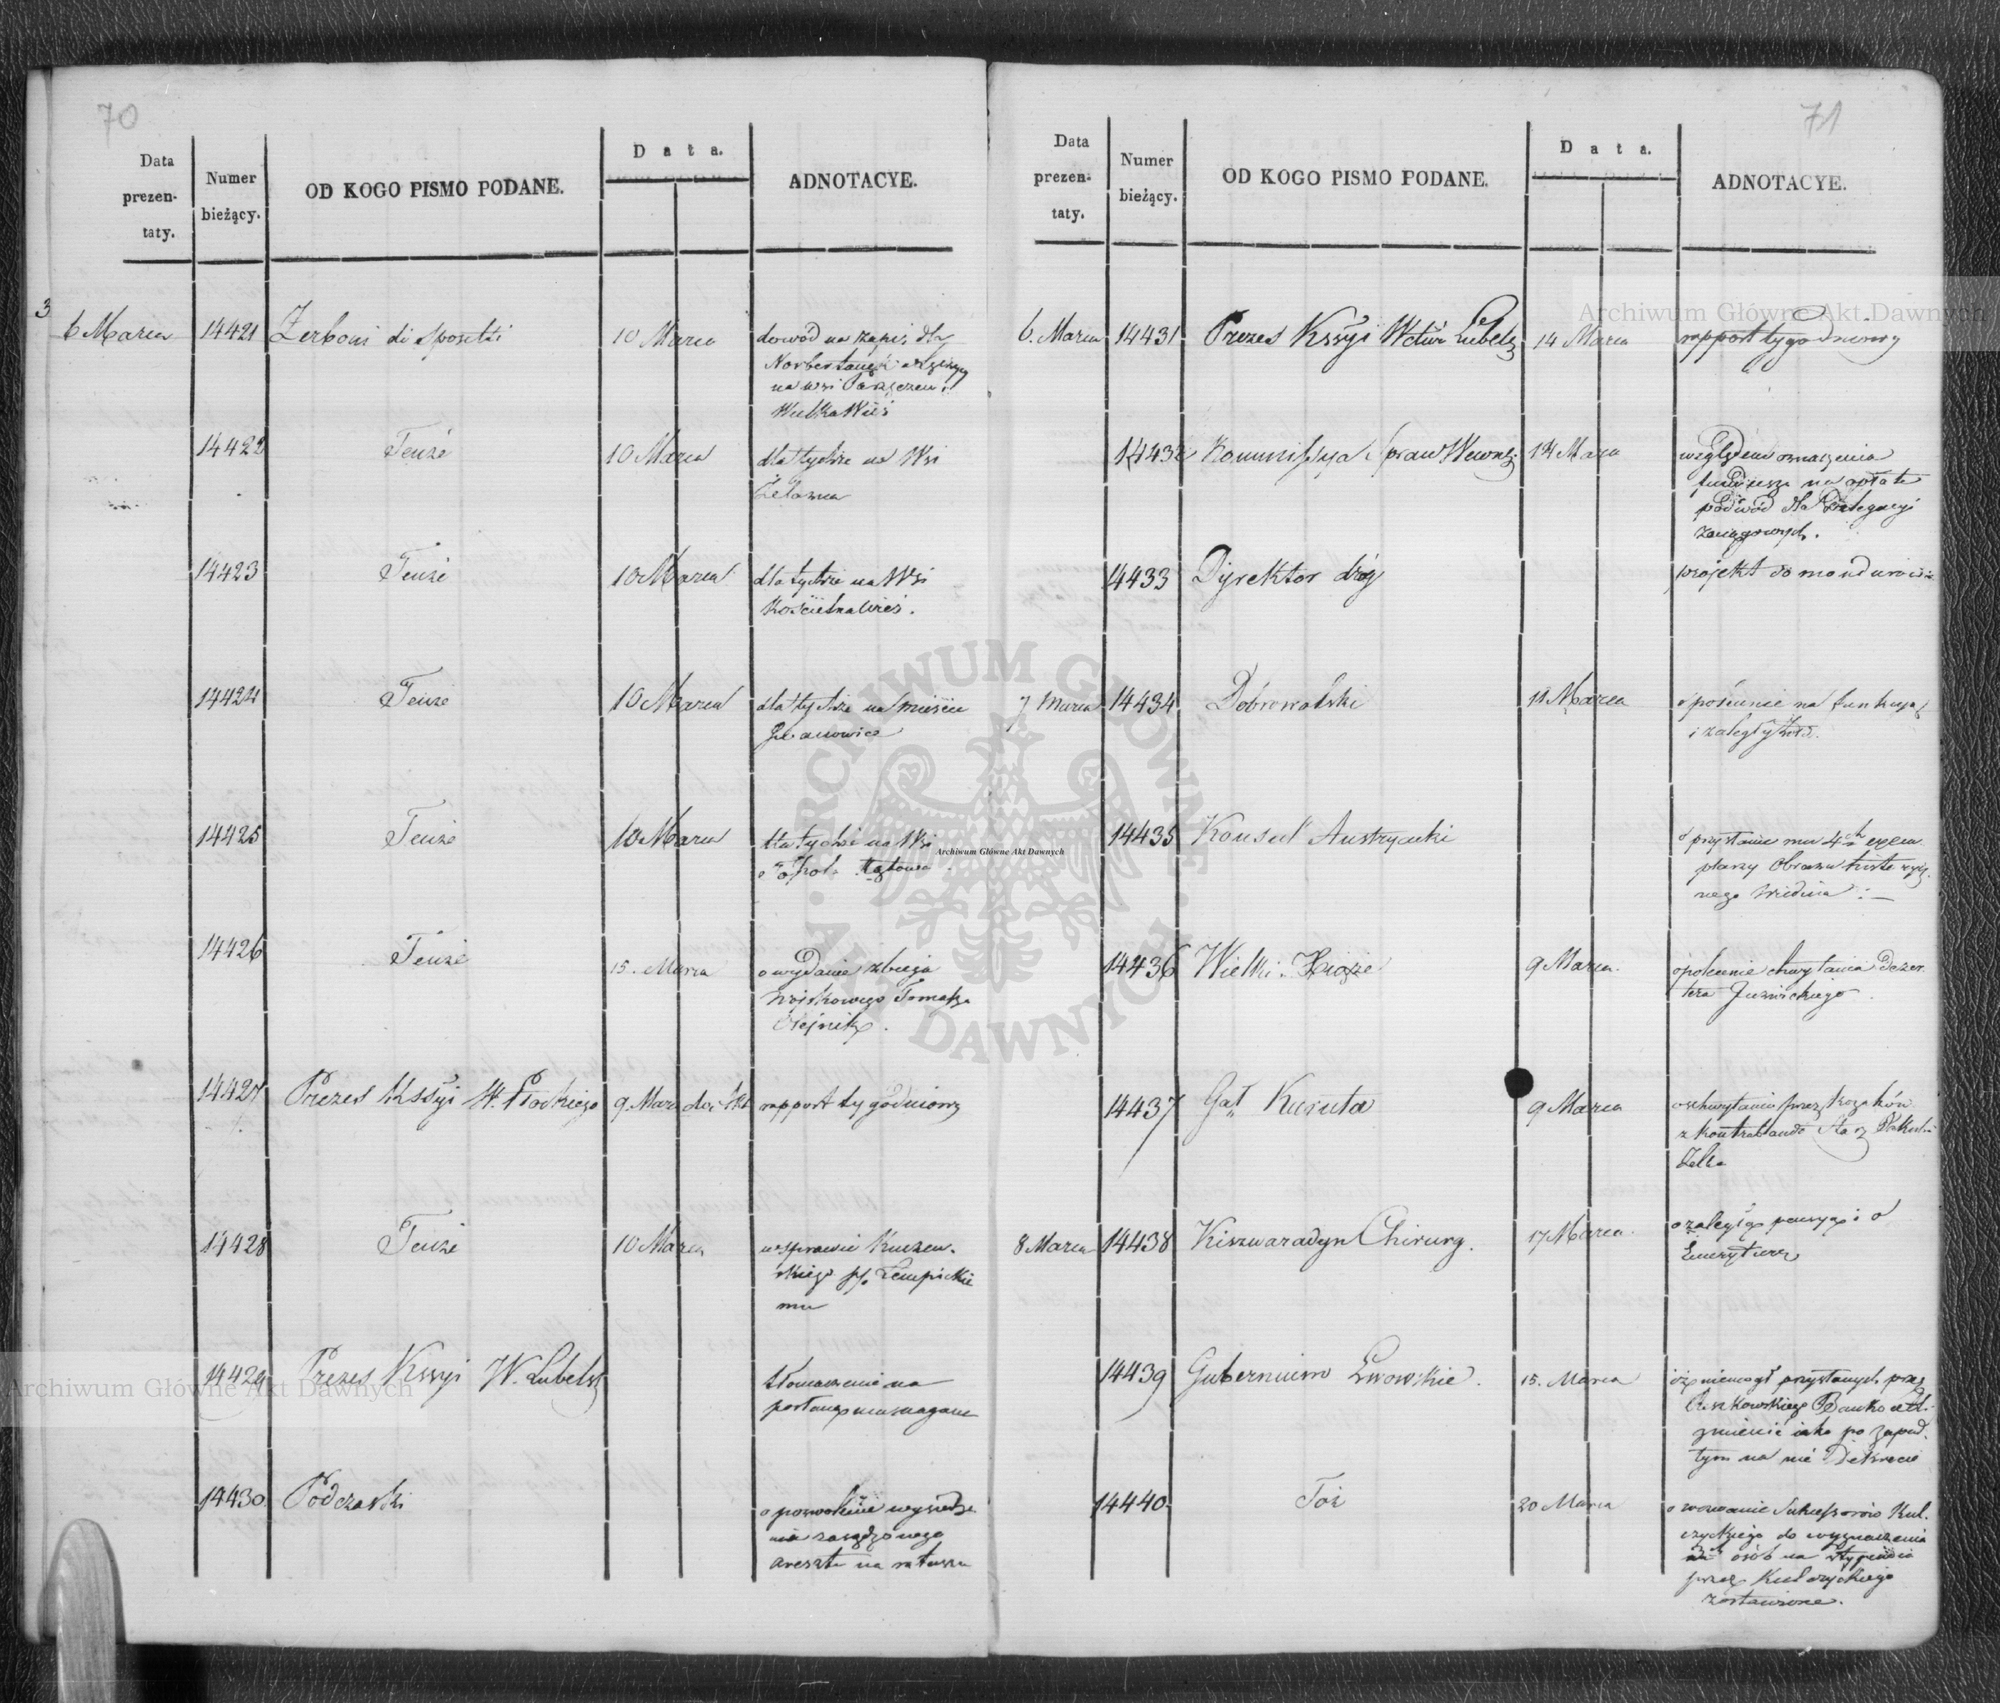 70
Data
prezen-
taty.
Numer
bieżący.
OD KOGO PISMO PODANE.
Data.
ADNOTACYE.
3
6 Marca 14421 Zerboni di Sposetti 10 Marca dowód na zapis dla
Norbertanek
na wsi
Wielka Wieś
14422 Tenże 10 Marca dla tychże na Wsi
Żelazna
14423 Tenże 10 Marca dla tychże na Wsi
Kościelna Wieś.
14424 Tenże 10 Marca dla tychże na mieście
Iwanowice
14425 Tenże 10 Marca dla tychże na Wsi
14426 Tenże 15. Marca o wydanie zbiega
wojskowego Tomasza
Olejnik.
14427 Prezes Kssyi W. Płockiego 9 Marca rapport tygodniowy
14428 Tenże 10 Marca w sprawie
skiego pko Lempickie
mu
14429 Prezes Kssyi W. Lubels tłomaczenie na
14430 Podczaski o pozwolenie wysiedze
nia zasądzonego
aresztu na ratuszu
71
Data
prezen-
taty.
Numer
bieżący.
OD KOGO PISMO PODANE.
Data.
ADNOTACYE.
6. Marca 14431 Prezes Kssyi Wctwa Lubels 14 Marca rapport tygodniowy
14432 Kommissya Spraw Wewnę: 14 Marca względem oznaczenia
funduszu na opłatę
podwód dla Delegacyi
zaciągowych.
14433 Dyrektor dróg projekt do mundurów
7 Marca 14434 Dobrowolski 11 Marca
i zaległy żołd.
14435 Konsul Austryacki o przysłanie mu 4ch exem
plarzy Obrazu history
nego Wiednia :—
14436 Wielki Xiąże 9 Marca. o polecenie chwytania Dezer
tera
14437 Gał Kuruta 9 Marca o schwytaniu przez kozaków
z kontrabandą
8 Marca 14438 Kiszwaradyn Chirurg. 17 Marca. o zaległą pensyą i o
Emeryturę
14439 Gubernium Lwowskie. 15. Marca iż niemogł przysłanych przez
zmienić jako po zapad.
tym na nie Dekrecie
14440. Toż 20 Marca o wezwanie Sukcessorów Kul.
czyckiego do wyznaczenia
osób na stypendia
przez Kulczyckiego
zostawione.
Archiwum Główne Akt Dawnych
ARCHIWUM GŁÓWNE AKT DAWNYCH
Archiwum Główne Akt Dawnych
Archiwum Główne Akt Dawnych